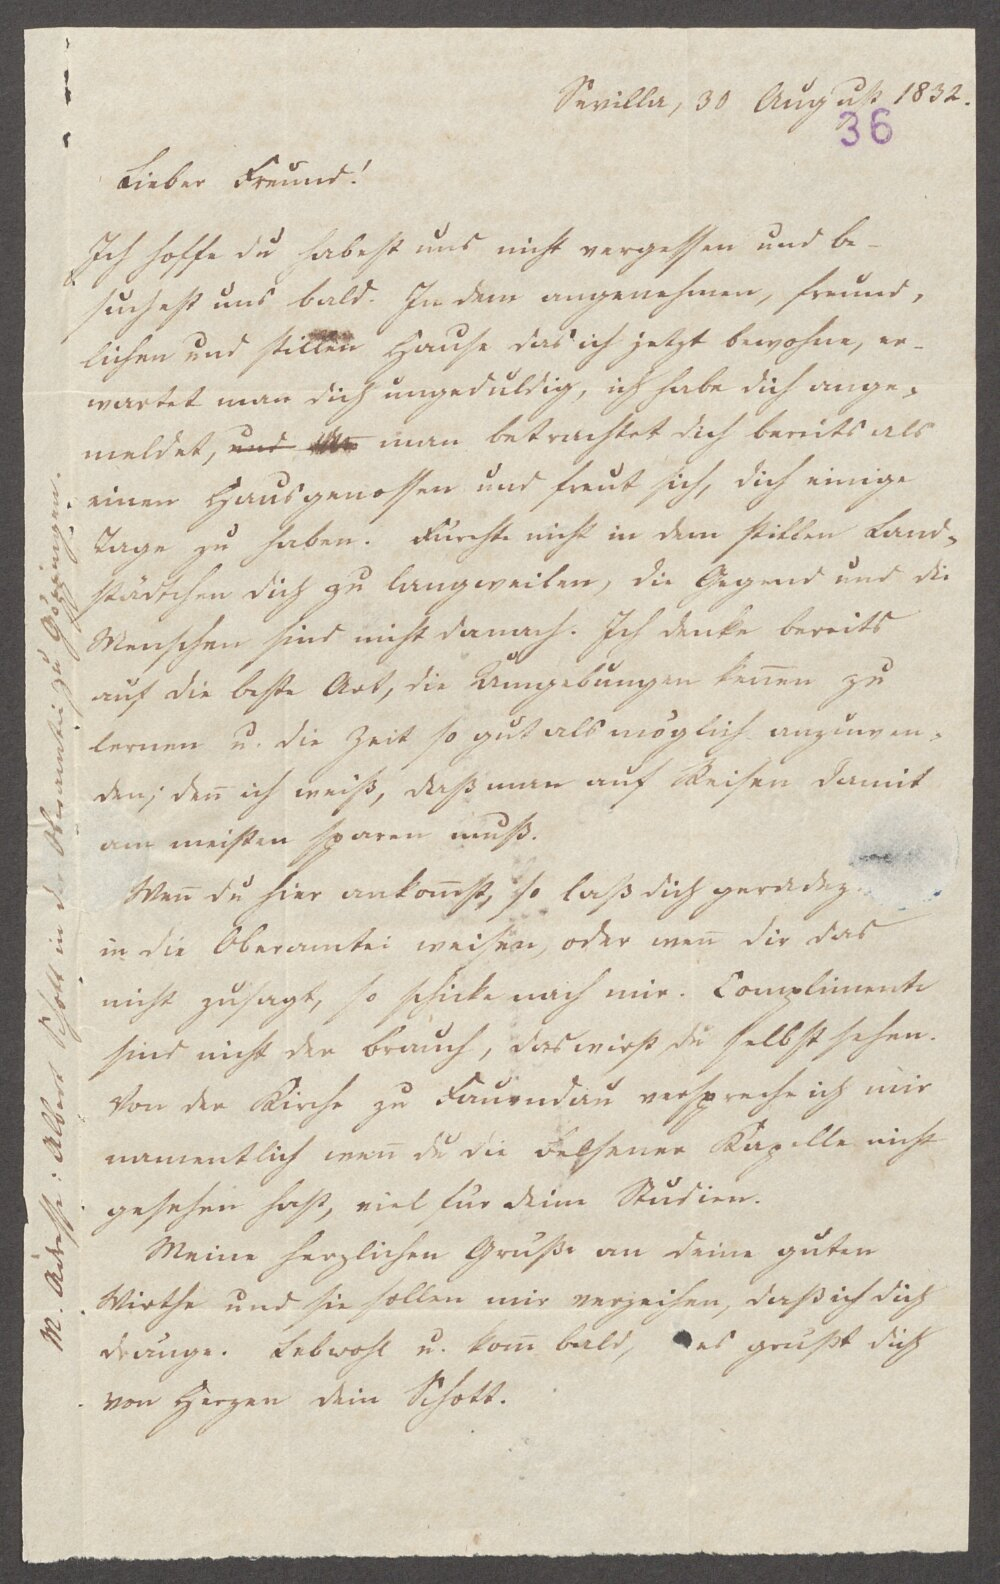 Sevilla, 30 August 1832.
36
Lieber Freund!
Ich hoffe du habest uns nicht vergessen und be-
suchest uns bald. In dem angenehmen, freund-
lichen und stillen Hause das ich jetzt bewohne, er-
wartet man dich ungeduldig, ich habe dich ange-
meldet, und man betrachtet dich bereits als
einen Hausgenossen und freut sich, dich einige
Tage zu haben. Fürchte nicht in dem stillen Land-
städtchen dich zu langweilen, die Gegend und die
Menschen sind nicht danach. Ich denke bereits
auf die beste Art, die Umgebungen keñen zu
lernen u. die Zeit so gut als möglich anzuwen-
den; deñ ich weiß, daß man auf Reisen damit
am meisten sparen muß.
Weñ du hier ankom̄st, so laß dich geradez
in die Oberamtei weisen, oder weñ dir das
nicht zusagt, so schicke nach mir. Complimente
sind nicht der Brauch, das wirst du selbst sehen.
Von der Kirche zu Faurndau verspreche ich mir
namentlich weñ du die Kapelle nicht
gesehen hast, viel für deine Studien.
Meine herzlichen Grüße an deine guten
Wirthe und sie sollen mir verzeihen, daß ich dich
dränge. Lebwohl u. kom̄ bald, es grüßt dich
von Herzen dein Schott.
M. Adresse: Albert Schott in der Oberamtei zu Göppingen.